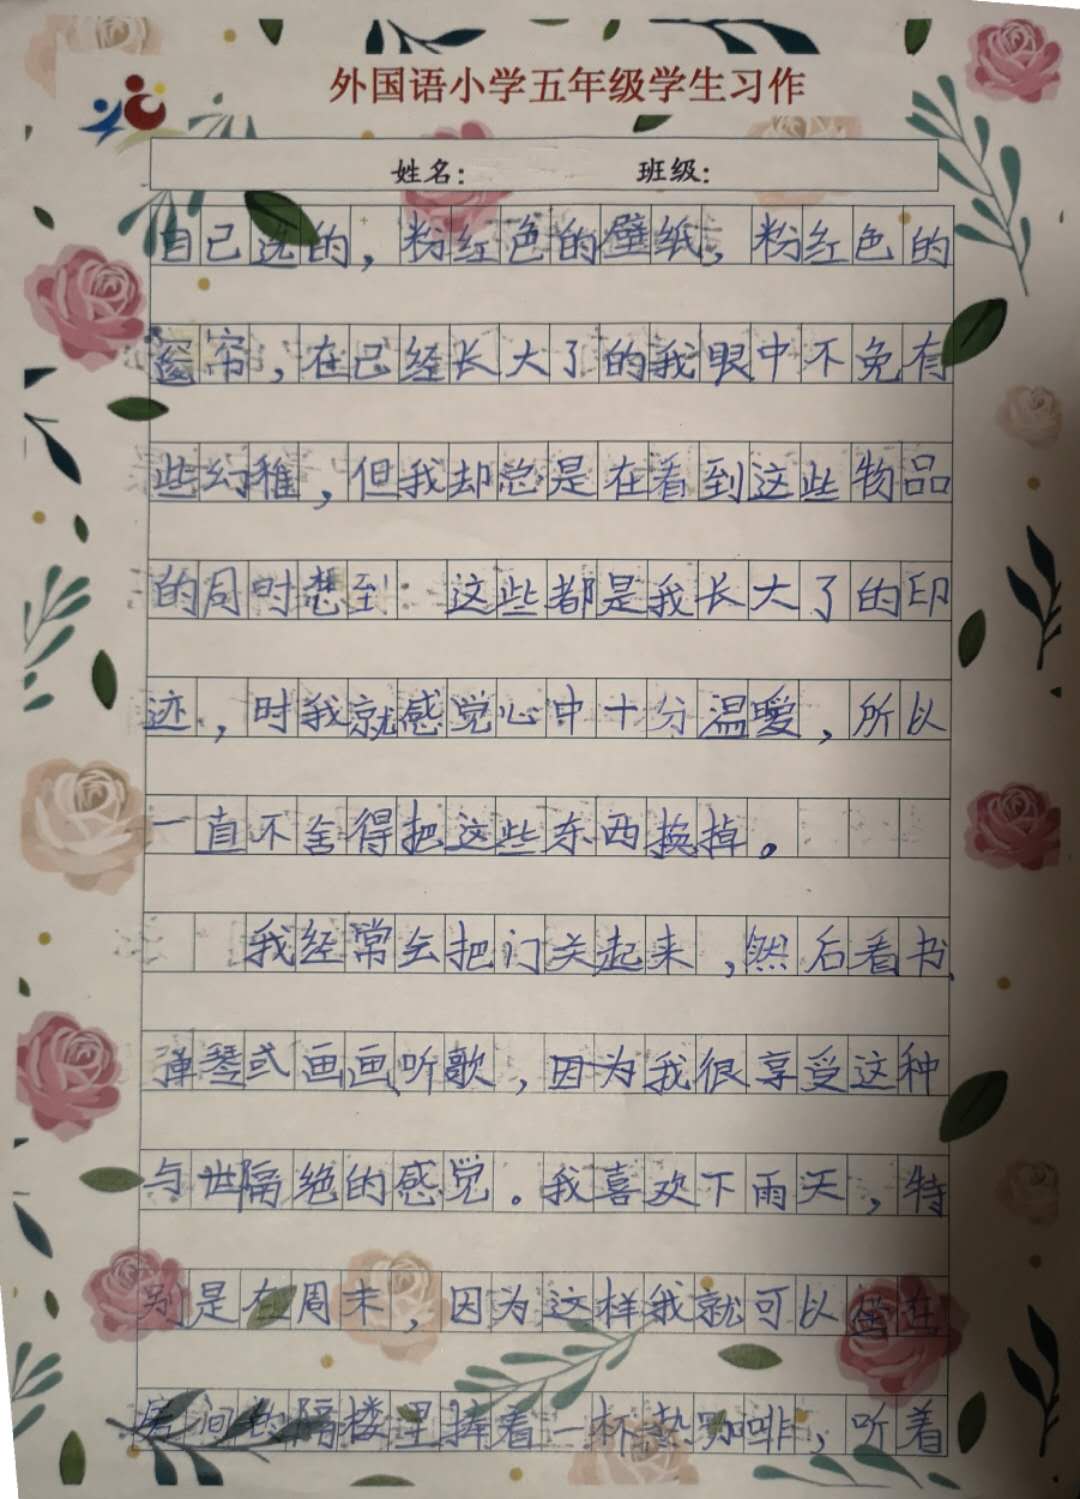 外国语小学五年级学生习作
姓名： 班级：
自己选的，粉红色的壁纸，粉红色的
窗帘，在已经长大了的我眼中不免有
些幻稚，但我却总是在看到这些物品
的同时想到：这些都是我长大了的印
迹，时我就感觉心中十分温暖，所以
一直不舍得把这些东西换掉。
我经常会把门关起来，然后看书、
弹琴或画画、听歌，因为我很享受这种
与世隔绝的感觉。我喜欢下雨天，特
别是在周末，因为这样我就可以坐在
房间的隔楼里捧着一杯热咖啡，听着